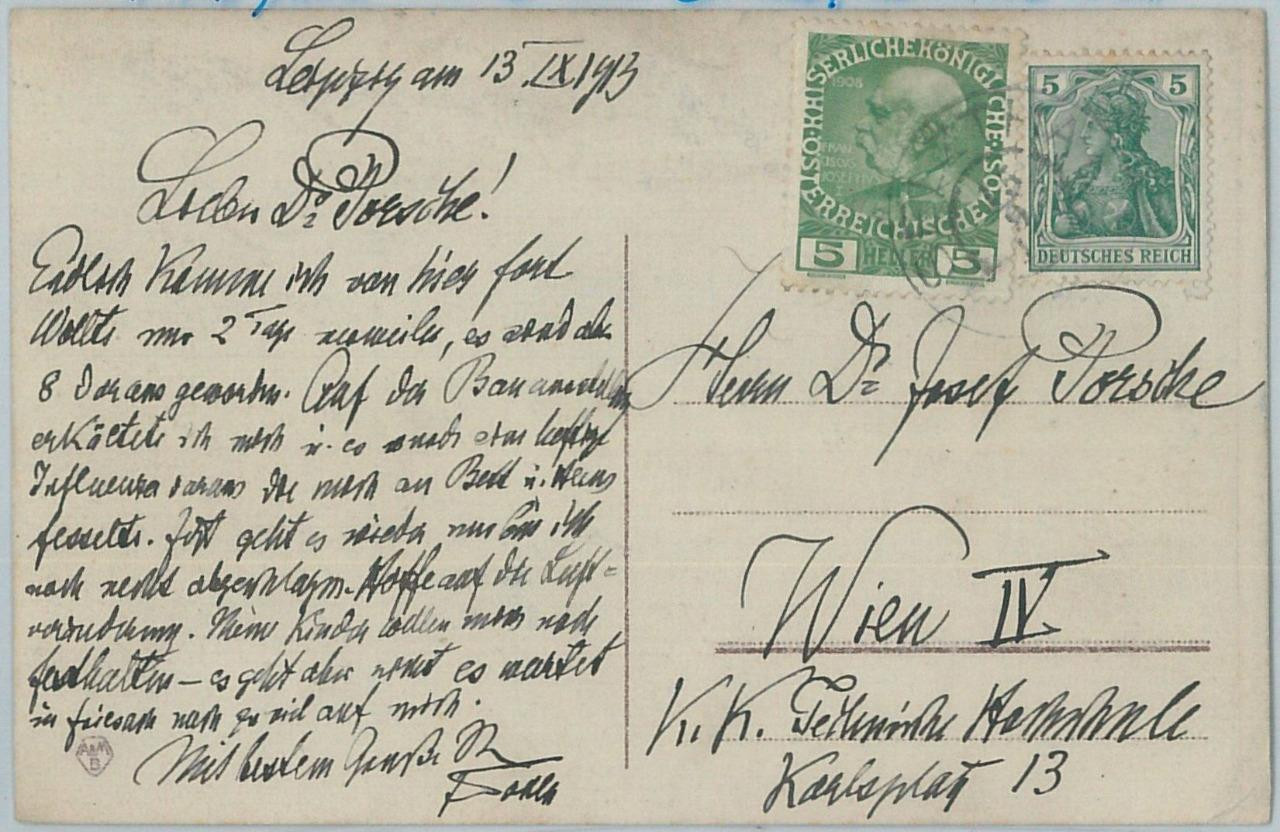 Leipzig am 13 IX. 1913
Lieber Dr Porsche!
Endlich komme ich von hier fort
Wollte nur 2 Tage verweilen, es sind aber
8 daraus geworden. Auf der Bauausstellung
erkältete ich mich u. es wurde eine heftige
Influenza daraus die mich an Bett u. Haus
fesselte. Jetzt geht es wieder nur bin ich
noch recht abgeschlagen. Hoffe auf die Luft=
veränderung. Meine Kinder wollen mich noch
festhalten – es geht aber nicht es wartet
in Friesach noch so viel auf mich.
Mit bestem Gruße
A&M
B
ÖSTERREICHISCHE
KAISERLICHE KÖNIGLICHE
1908
FRAN
CISCVS
IOSEPHVS
I
5 HELLER 5
5 5
DEUTSCHES REICH
Herrn Dr Josef Porsche
Wien IV
K. K. Technische Hochschule
Karlsplatz 13